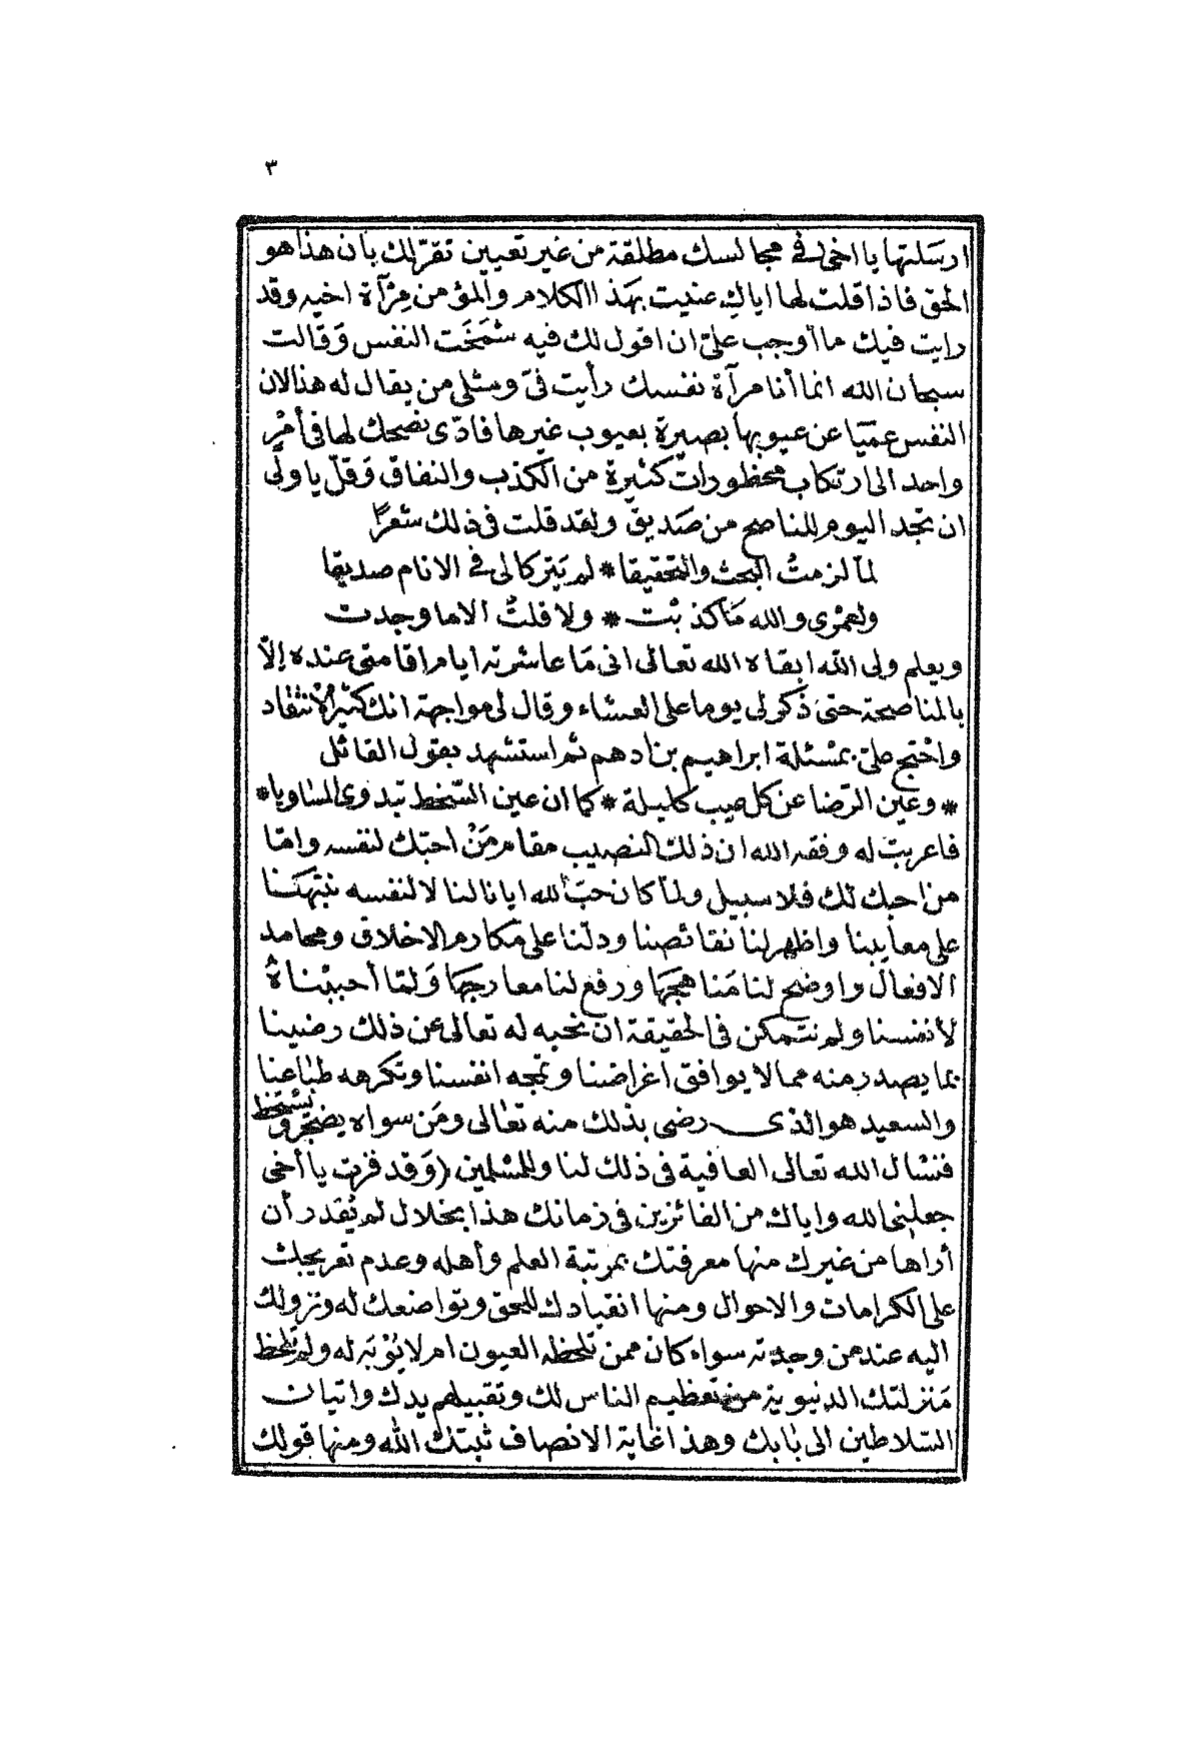 ٣
ارسَلتها يا اخى فى مجالسك مطلقة من غير تعيين تقرّ لك بان هذا هو
الحق فاذا قلت لها اياكِ عنيت بهذا الكلام والمؤمن مِرْآة اخيه وقد
رايت فيك ما أوجب علىّ ان اقول لك فيه شمَخَت النفس وَقالت
سبحان الله انما أنا مرآة نفسك رأيت فىّ ومثلى من يقال له هذا لان
النفس عميَا عن عيوبها بصيرة بعيوب غيرها فادّى نصحك لها فى أمْرٍ
واحد الى ارتكاب محظورات كثيرة من الكذب والنفاق وَقلّ يا ولى
ان تجد اليوم للناصح من صَديق ولقد قلت فى ذلك شعرًا
لمّا لزمتُ البحث والتحقيقا * لم يَتركا لى فى الانام صديقا
ولعمْرى والله مَا كذبْت * ولا قلتُ الا ما وجدت
ويعلم ولى الله ابقاه الله تعالى انى مَا عاشرته ايام اقامتى عنده إلاّ
بالمناصحة حتى ذَكر لى يوما على العشاء وقال لى مواجهة انك كثير الانتقاد
واحْتج علىّ بمسْئلة ابراهيم بن ادهم ثم استشهد بقول القائل
* وعين الرّضا عن كل عيب كليلة * كما ان عين السّخط تبدوى المساويا *
فاعربت له وفقه الله ان ذلك النصيب مقام مَنْ احبّك لنفسه وامّا
من احبك لك فلا سبيل ولمّا كان حبّ الله ايانا لنا لا لنفسه نبّهَنا
على معايبنا واظهر لنا نقائصنا ودلّنا على مكارم الاخلاق ومحامد
الافعال واوضح لنا مَناهجَها ورفع لنا معارجهَا وَلمّا أحببْناهُ
لأنفسنا ولم نتمكن فى الحقيقة ان نحبه له تعالى عن ذلك رضينا
بما يصدر منه مما لا يوافق اغراضنا وتمجه انفسنا وتكرهه طباعنا
والسعيد هو الذى رضى بذلك منه تعالى ومَن سواه يضجر ويتسخط
فنسْال الله تعالى العافية فى ذلك لنا وللمسْلمين (وَقد فزت يا أخى
جعلنى الله واياك من الفائزين فى زمانك هذا بخلال لم يُقدر أن
أراها من غيرك منها معرفتك بمرتبة العلم وأهله وعدم تعريجك
على الكرامات والاحوال ومنها انقيادك للحق وتواضعك له ونزولك
اليه عند من وجدته سواء كان ممن تلحظه العيون ام لا يُوْبَه له ولم تلحظ
مَنزلتك الدنيوية من تعظيم الناس لك وتقبيلهم يدك واتيان
السّلاطين الى بَابك وهذا غاية الانصاف ثبتك الله ومنها قولك